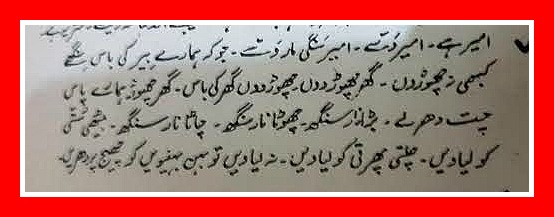 امیر ہے۔ امیر دَتے۔ امیر سَنگی مار دَتے۔ جو کہ ہمارے بیر کی باس سُنگھے
کبھی نہ چھوڑدوں۔ گھر چھوڑدوں چھوڑدوں گھر کی باس۔ گھر چھوڑ ہمارے پاس
چت دھرلے۔ بڑا نار سنگھ۔ چھوٹا نار سنگھ۔ چاٹا نار سنگھ۔ بیٹھی
کو لیادیں۔ چلتی پھرتی کو لیادیں۔ نہ لیادیں تو بہن بہنیویں کو سیج پر دھریں۔